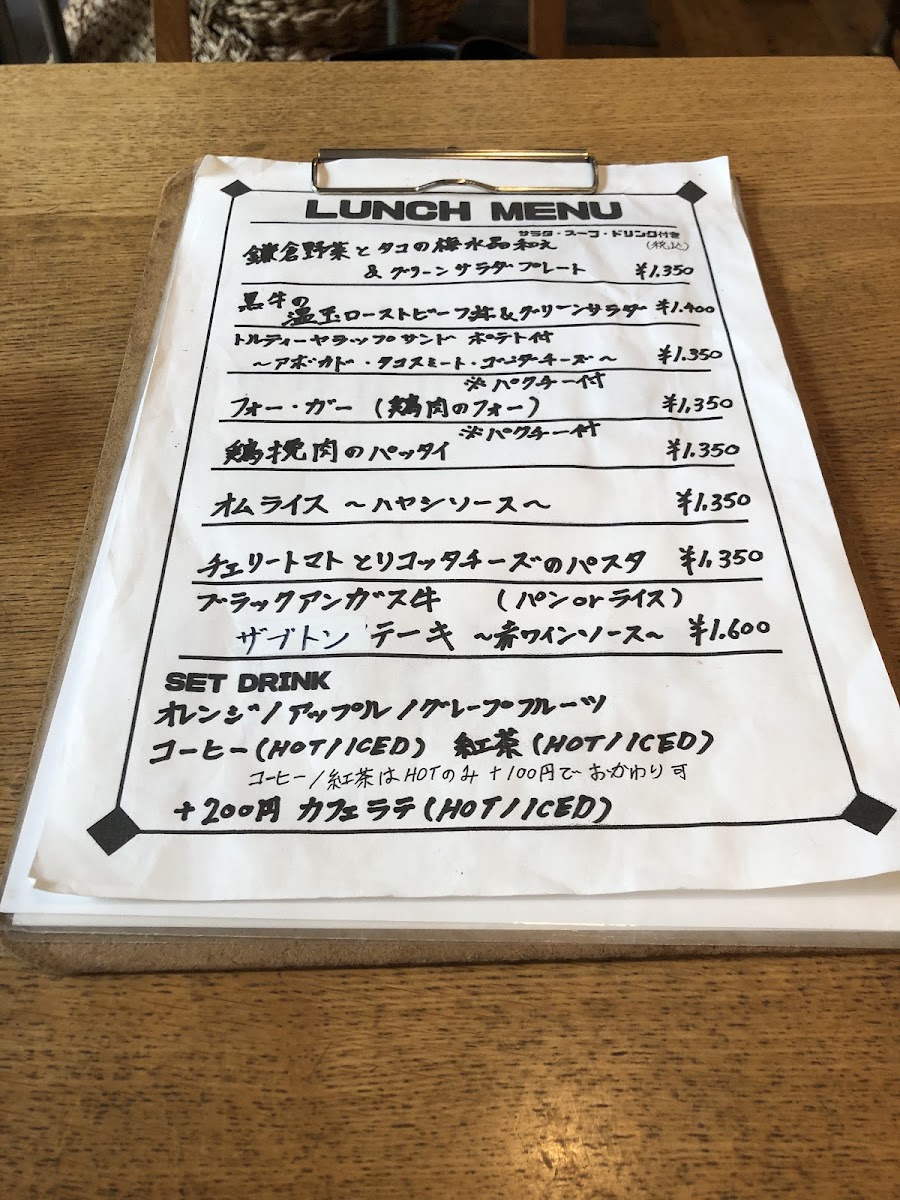 LUNCH MENU
サラダ・スープ・ドリンク付き
(税込)
鎌倉野菜とタコの梅水晶和え
& グリーンサラダプレート ¥1.350
黒牛の
温玉ローストビーフ丼&グリーンサラダ ¥1.400
トルティーヤラップサンド ポテト付
〜アボカド・タコスミート・ゴーダチーズ〜 ¥1.350
※パクチー付
フォー・ガー (鶏肉のフォー) ¥1.350
※パクチー付
鶏挽肉のパッタイ ¥1.350
オムライス 〜ハヤシソース〜 ¥1.350
チェリートマトとリコッタチーズのパスタ ¥1.350
ブラックアンガス牛 (パンorライス)
ザブトン テーキ 〜赤ワインソース〜 ¥1.600
SET DRINK
オレンジ/アップル/グレープフルーツ
コーヒー(HOT/ICED) 紅茶(HOT/ICED)
コーヒー/紅茶はHOTのみ +100円で おかわり可
+200円 カフェラテ(HOT/ICED)